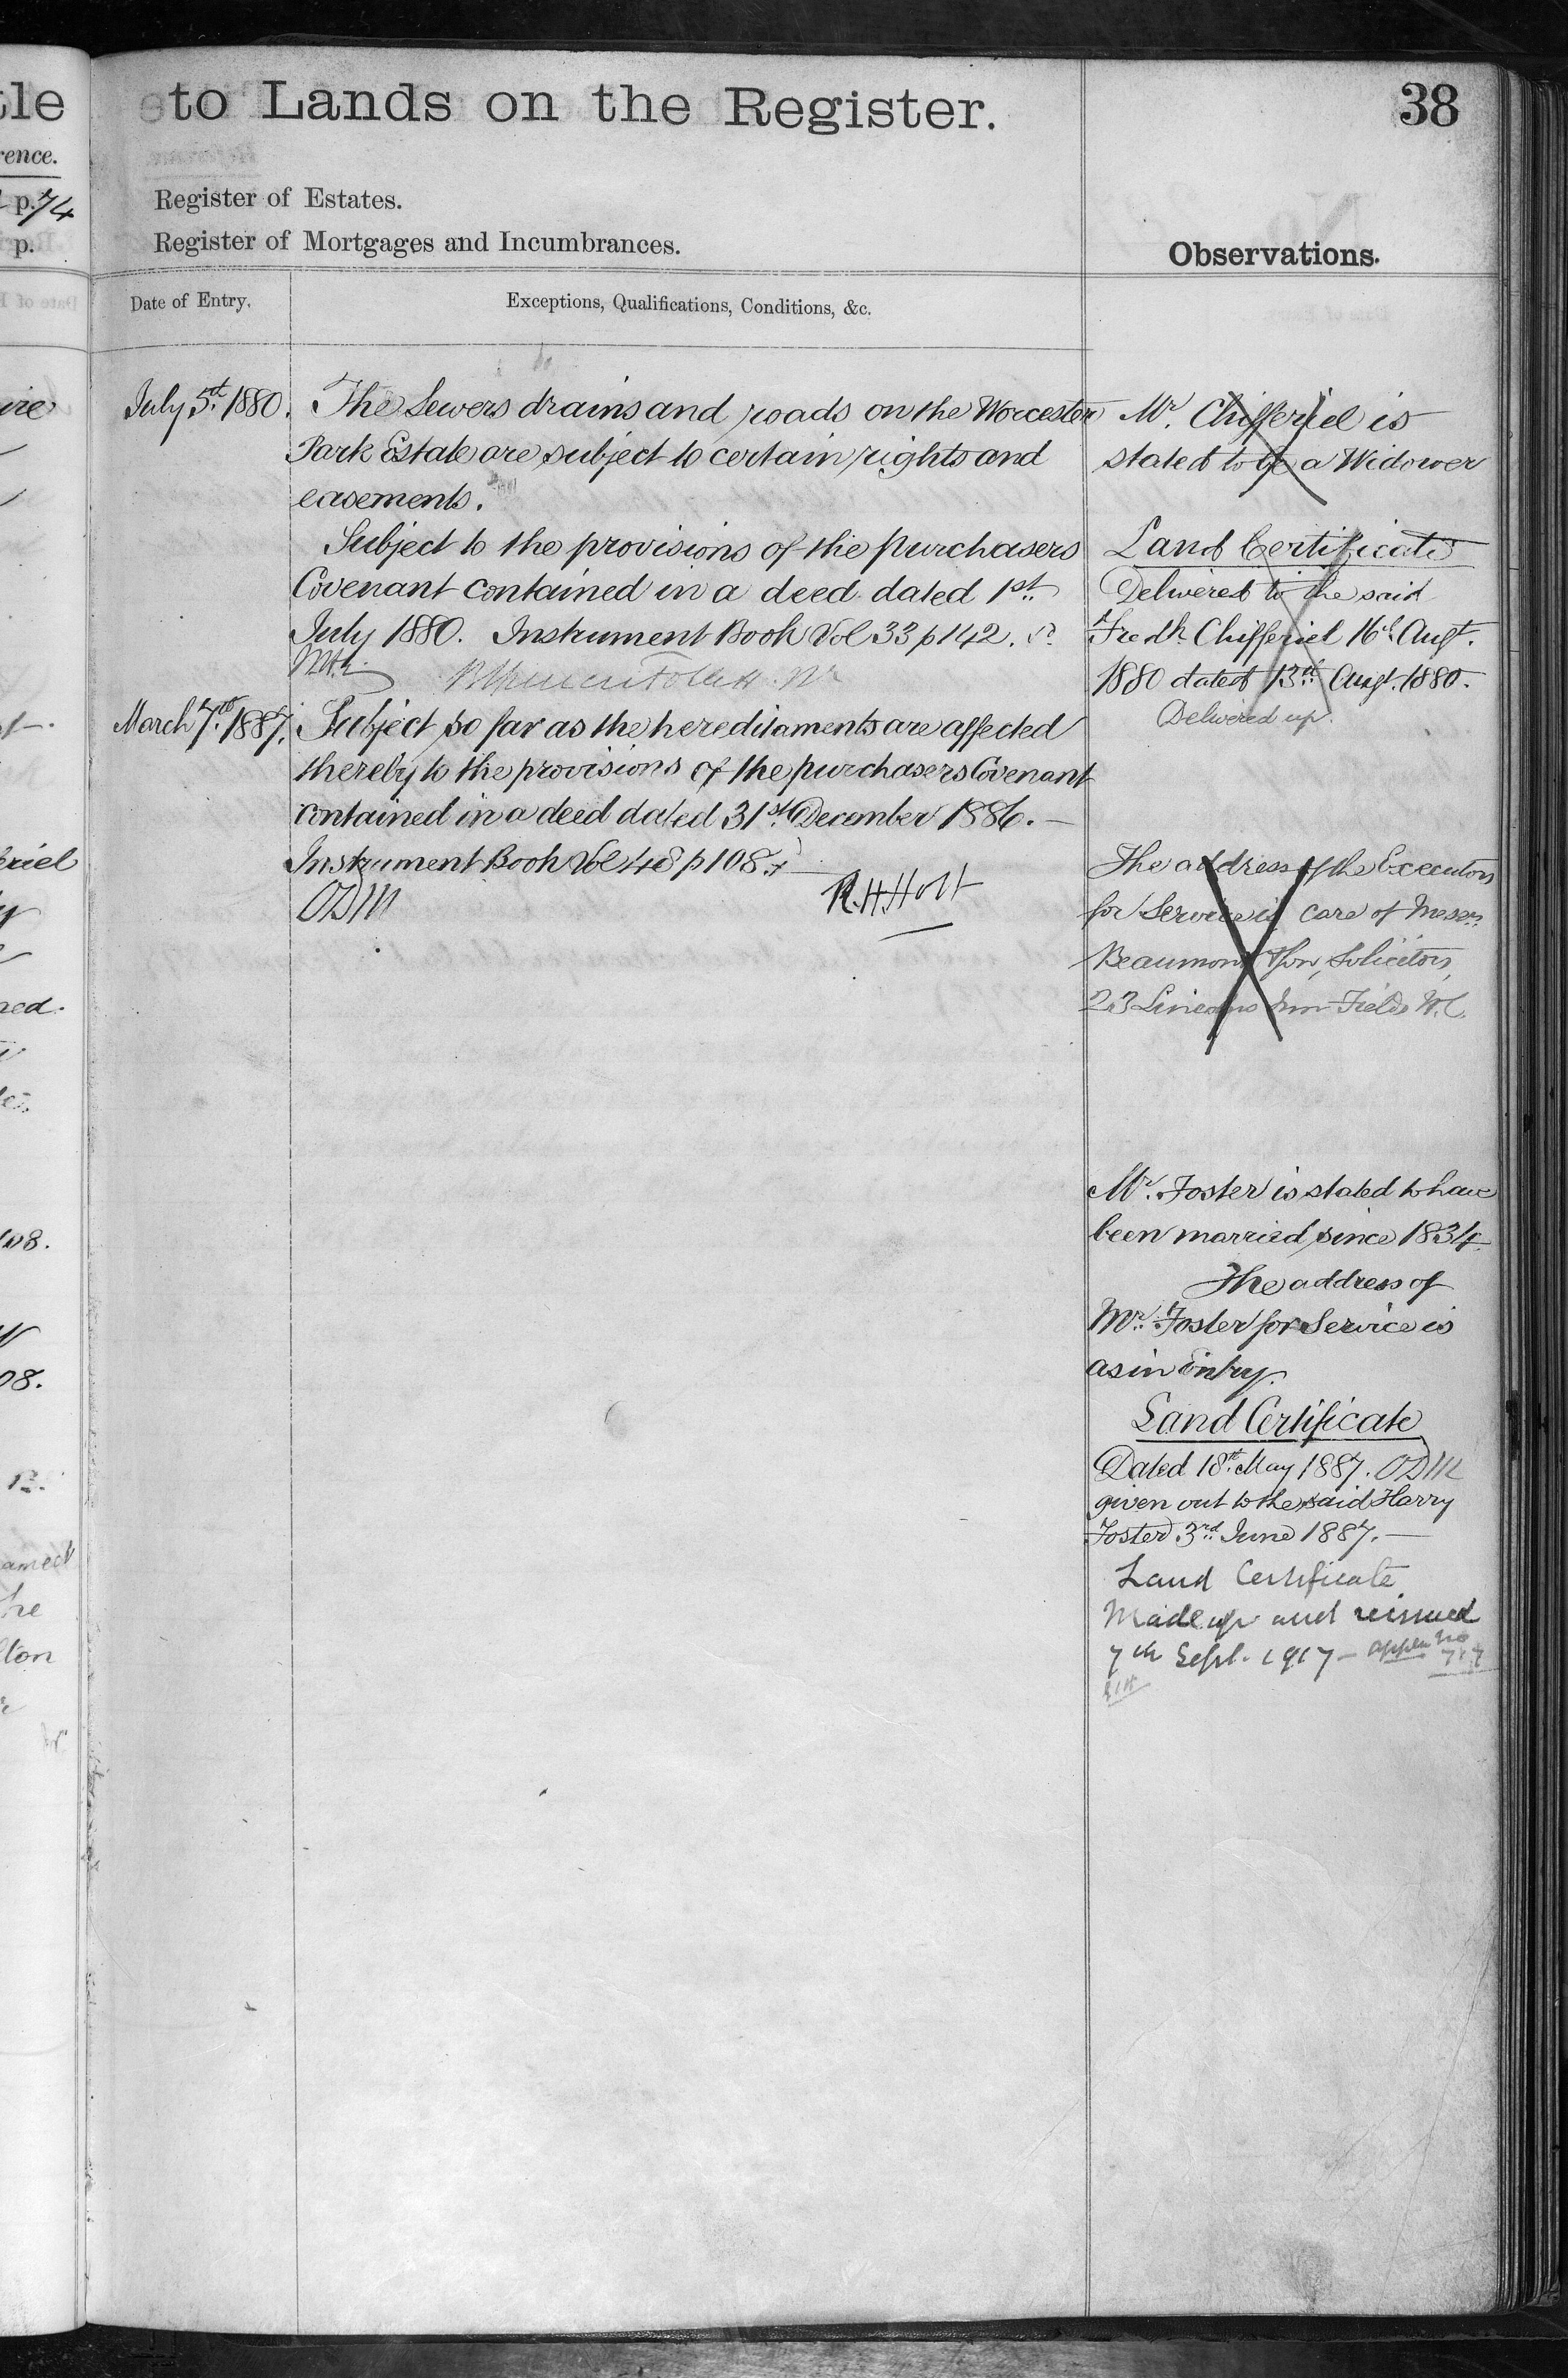 tle
rence.
p. 74
p.
ire
eriel
108.
08.
he
to Lands on the Register.
38
Register of Estates.
Register of Mortgages and Incumbrances.
Observations.
Date of Entry.
Exceptions, Qualifications, Conditions, &c.
July 5th. 1880.
The Sewers drains and roads on the Worcester
Park Estate are subject to certain rights and
easements.
Subject to the provisions of the purchasers
Covenant contained in a deed dated 1st.
July 1880. Instrument Book Vol 33 p 142.
March 7th. 1887.
Subject so far as the hereditaments are affected
thereby to the provisions of the purchasers Covenant
contained in a deed dated 31st. December 1886. —
Instrument Book Vol 48 p 108.
ODM
R.H. Holt
Mr. Chifferiel is
stated to be a Widower
Land Certificate
Delivered to the said
Fredk. Chifferiel 16th Augt.
1880 dated 13th. Augt. 1880.
Delivered up.
The address of the Executors
for Service is care of Messrs.
Beaumont & Son, Solicitors,
23 Lincolns Inn Fields W.C.
Mr. Foster is stated to have
been married since 1834.
The address of
Mr. Foster for Service is
as in Entry.
Land Certificate
Dated 18th. May 1887. ODM
given out to the said Harry
Foster 3rd. June 1887. —
Land Certificate
Made up and reissued
7th Sept. 1917 –